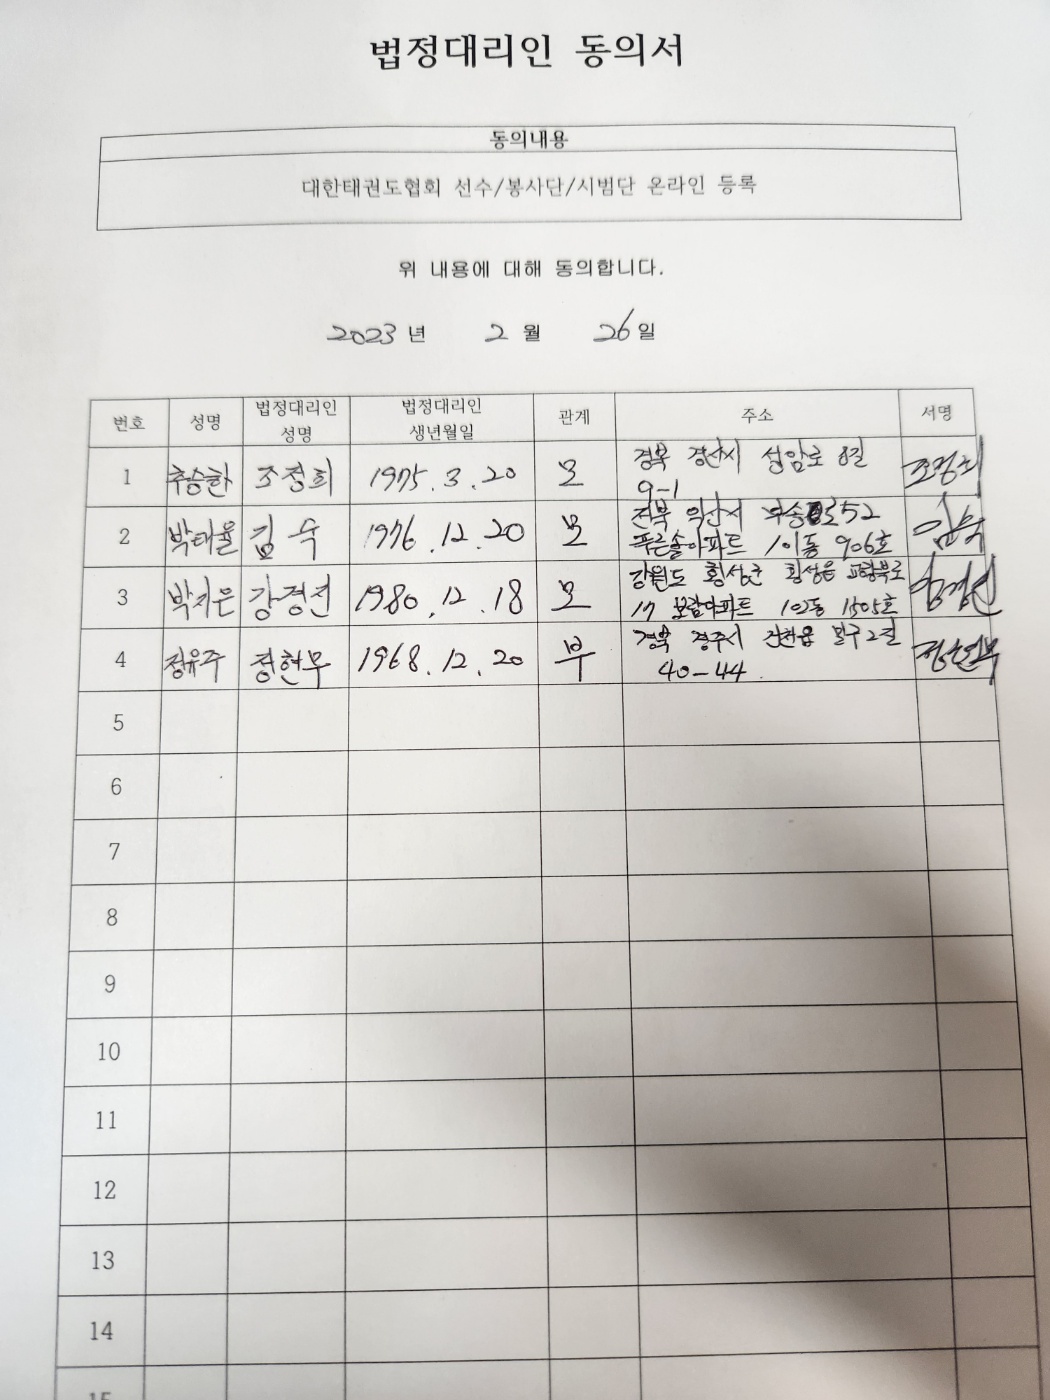 법정대리인 동의서
동의내용
대한태권도협회 선수/봉사단/시범단 온라인 등록
위 내용에 대해 동의합니다.
2023 년 2 월 26 일
번호 성명 법정대리인 성명 법정대리인 생년월일 관계 주소 서명
1 추승한 조정희 1975. 3. 20 모 경북 경산시 성암로 8길 9-1 조정희
2 박태율 김숙 1976. 12. 20 모 전북 익산시 52 푸른솔아파트 101동 906호 김숙
3 박지은 1980. 12. 18 모 강원도 횡성군 횡성읍 17 보람아파트 102동 1505호
4 정유주 정현무 1968. 12. 20 부 경북 경주시 건천읍 2길 40-44 정현무
5
6
7
8
9
10
11
12
13
14
15